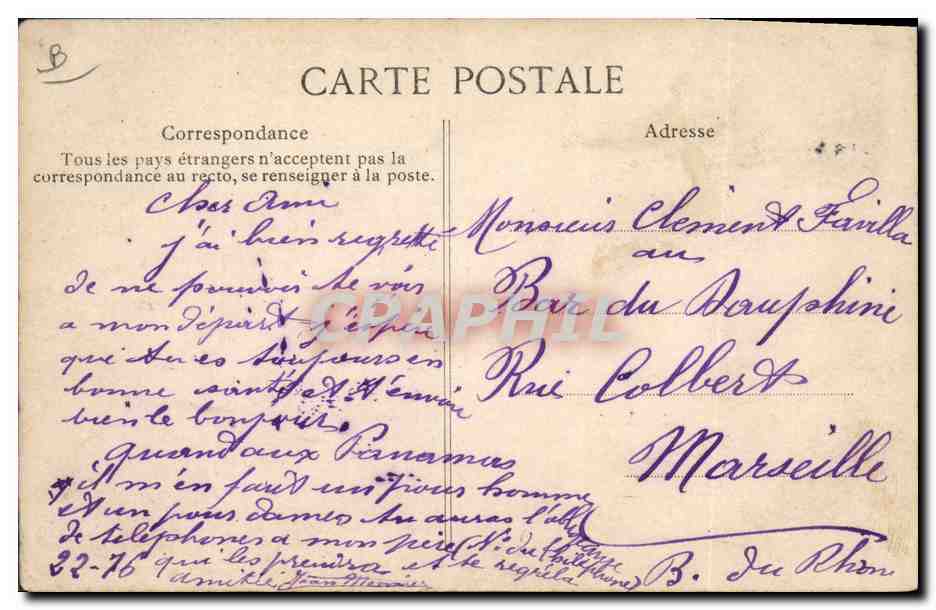 B
CARTE POSTALE
Correspondance
Tous les pays étrangers n'acceptent pas la
correspondance au recto, se renseigner à la poste.
cher Ami
j'ai bien regretté
de ne pouvoir te voir
a mon départ j'espère
que tu es toujours en
bonne santé et t'envoie
bien le bonjour.
quand aux Panamas
il m'en fait un pour homme
et un pour dames tu auras l'obligeance
de telephones a mon père (N° du téléphone)
22-76 qui les prendra et te reglera
amitié Jean Meunier
Adresse
Monsieur Clement Favilla
au
Bar du Dauphiné
Rue Colbert
Marseille
B. du Rhone
CPAPHIL